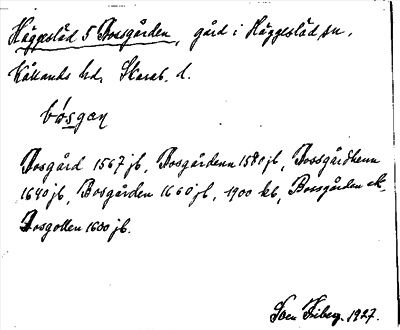 Häggeslād 5 Bossgården, gård i Häggeslād sn.
Kållands hd, Skarab. l.
bósgan
Bosgård 1567 jb, Bosgårdenn 1580 jb, Bossgårdhenn
1640 jb, Bosgården 1660 jb, 1900 kb, Bossgården ek,
Bosgollen 1600 jb.
Sven Friberg 1927.